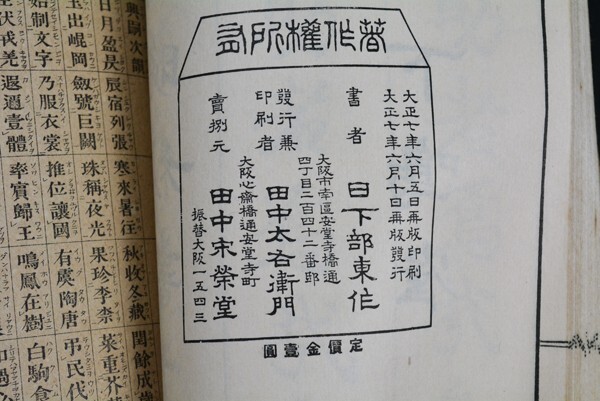 著作權所有
大正七年六月五日再版印刷
大正七年六月十日再版發行
書者 日下部東作
大阪市南區安堂寺橋通
四丁目二百四十二番邸
發行兼
印刷者 田中太右衞門
大阪心齋橋通安堂寺町
賣捌元 田中宋榮堂
振替大阪一五四三
定價金壹圓
興嗣次韻
日月盈昃 辰宿列張 寒來暑往 秋收冬藏 閏餘成
玉出崐岡 劔號巨闕 珠稱夜光 果珍李柰 菜重芥
始制文字 乃服衣裳 推位讓國 有虞陶唐 弔民代
伏戎羌 遐邇壹體 率賓歸王 鳴鳳在樹 白駒食